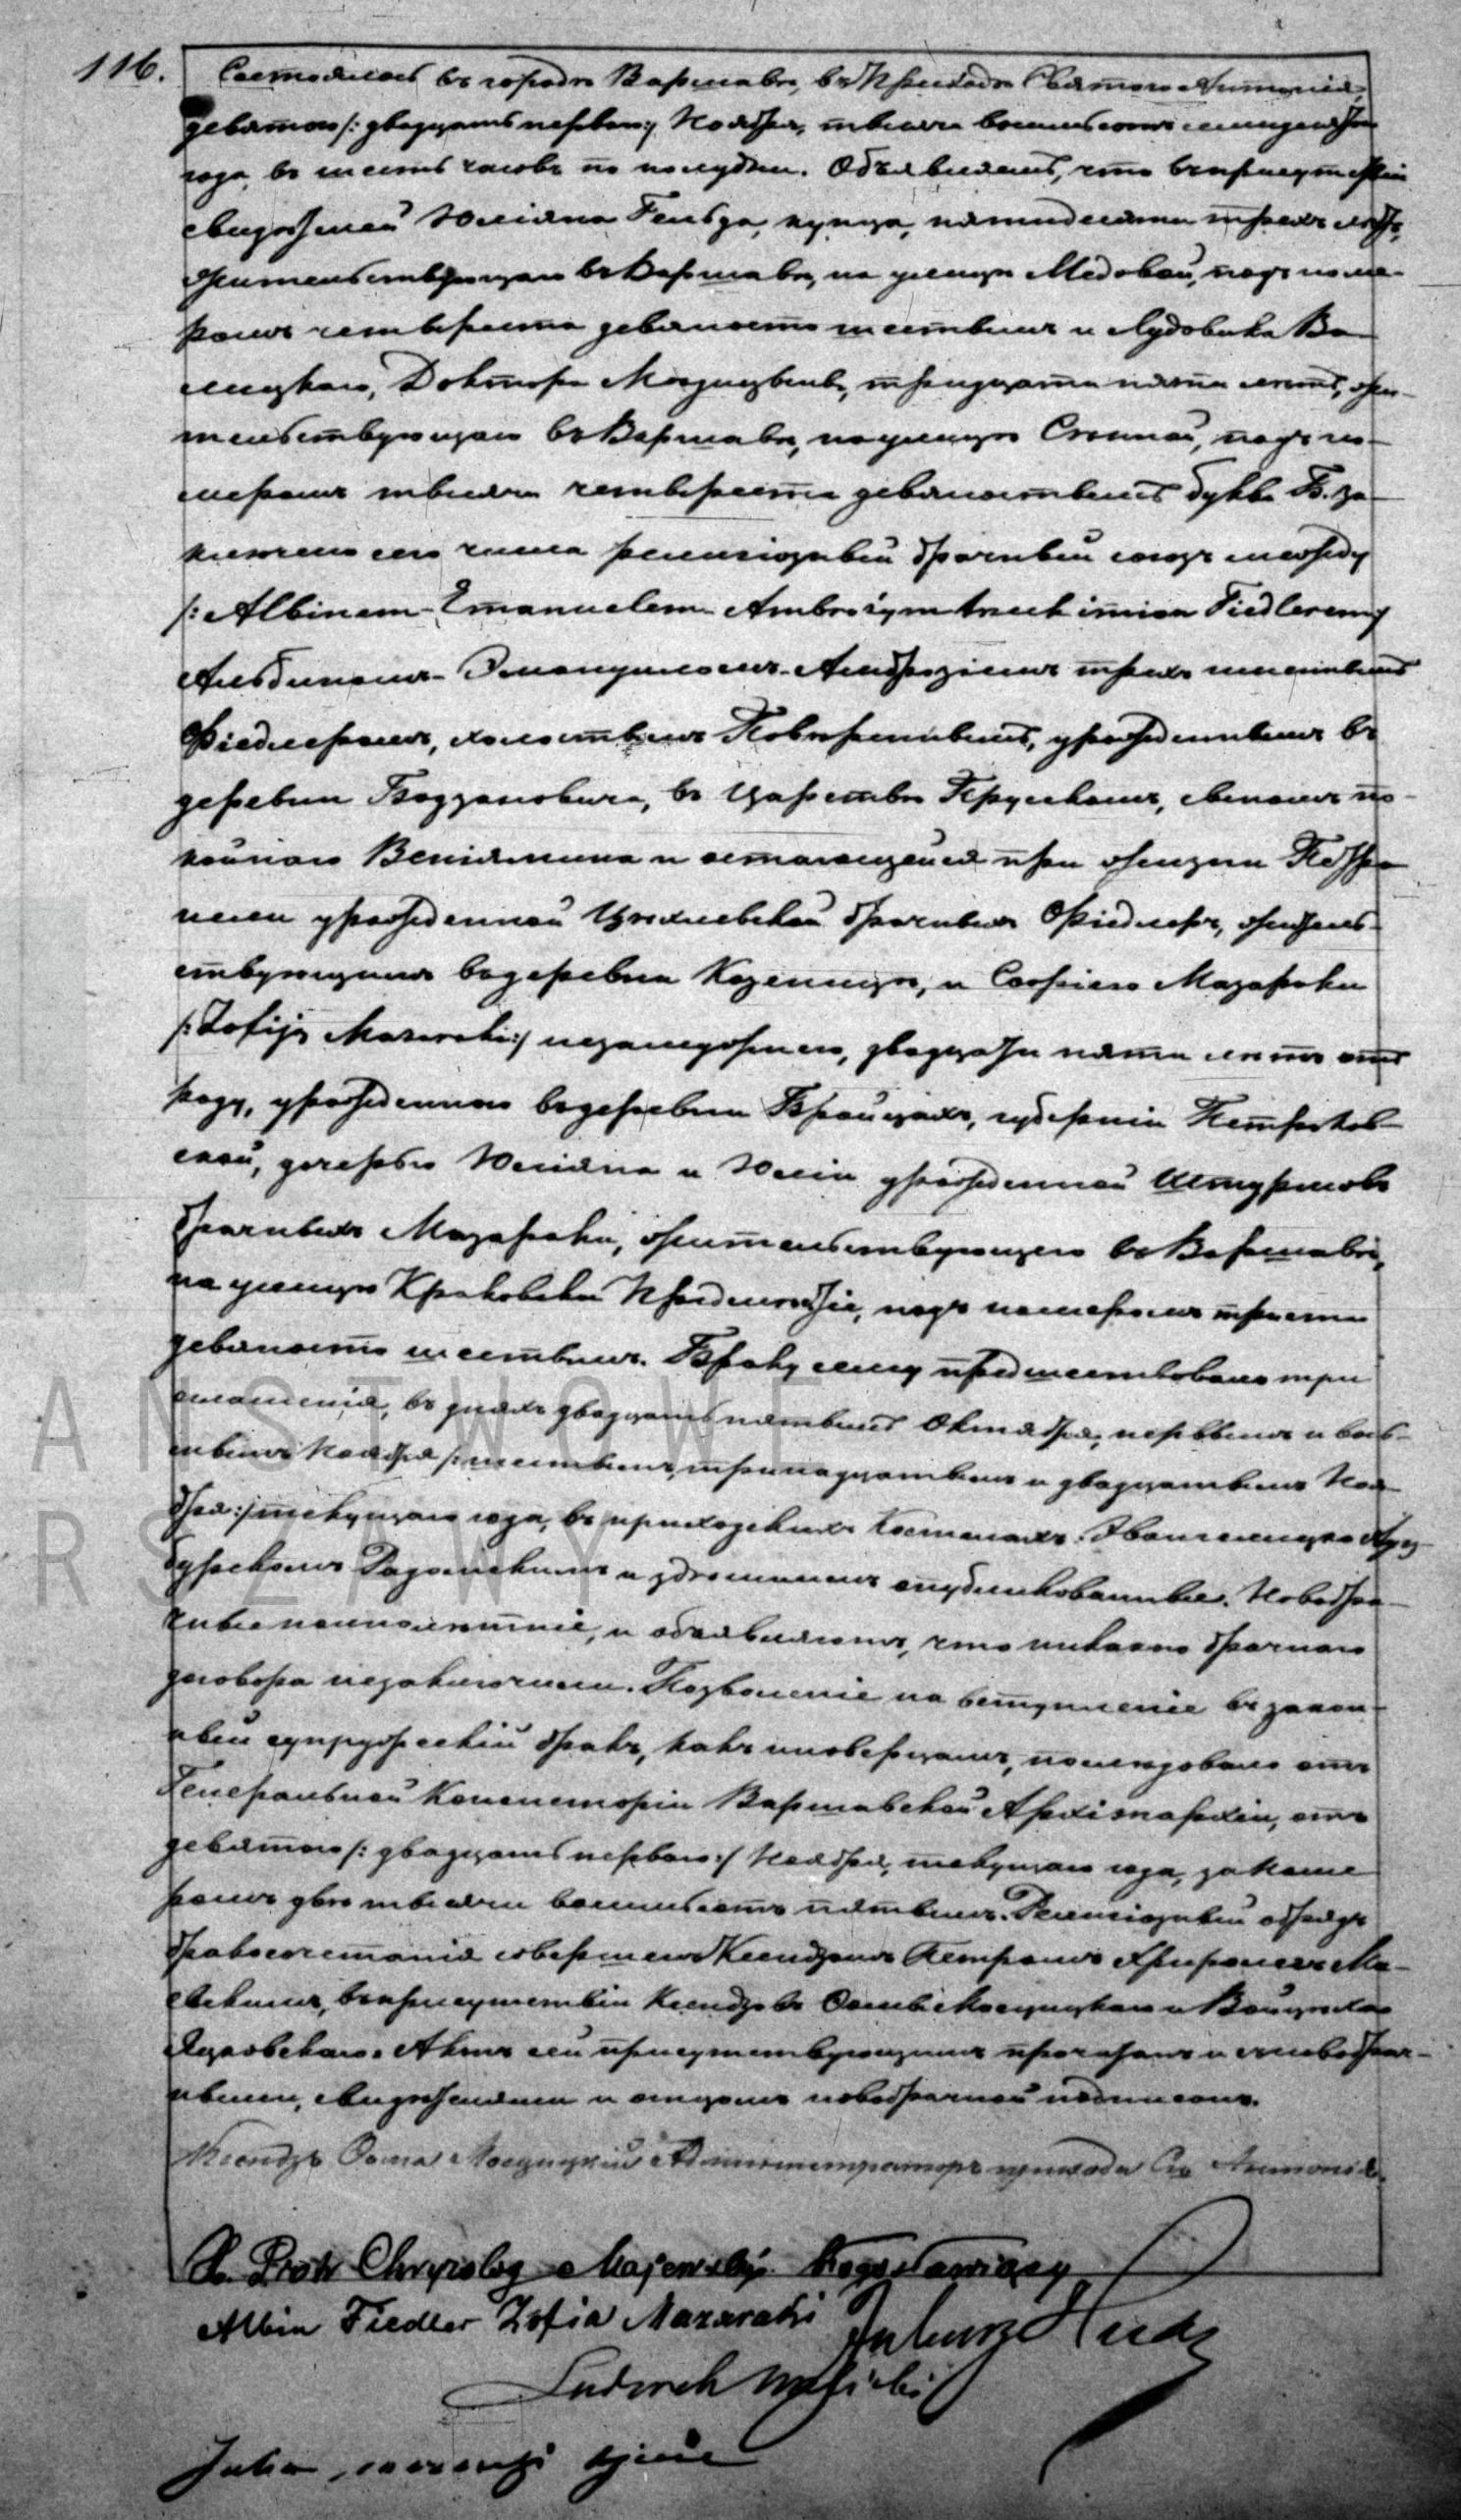 116. Состоялось въ городѣ Варшавѣ, въ Приходѣ Святаго Антонія,
девятого /: двадцать перваго :/ Ноября, тысяча восемьсотъ семидесятаго
года, въ шесть часовъ по полудни. Объявляемъ, что въ присутствіи
свидѣтелей Юліяна купца, пятидесяти трехъ лѣтъ,
жительствующаго въ Варшавѣ, на улицѣ Медовой, подъ номе-
ромъ четыреста девяносто шестымъ и Лудовика Во-
лицкаго, Доктора Медицины, тридцати пяти лѣтъ, жи-
тельствующаго въ Варшавѣ, на улицѣ подъ но-
меромъ тысяча четыреста девяностымъ буква Б. за-
ключенъ сего числа религіозный брачный союзъ между
/: Albinem-Emanuelem-Ambrożym trzech imion Fiedlerem :/
Альбиномъ-Эмануиломъ-Амброзіемъ трехъ именъ
Фіедлеромъ, холостымъ урожденнымъ въ
деревни въ Царствѣ Прусскомъ, сыномъ по-
койнаго Веніямина и остающейся при жизни
урожденной брачныхъ Фіедлеръ, житель-
ствующимъ въ деревни и Софіею Мазараки
/: Zofiją Mazaraki :/ незамужнею, двадцати пяти лѣтъ отъ
роду, урожденною въ деревни губерніи Петроков-
ской, дочерью Юліяна и Юліи урожденной Штурмовъ
брачныхъ Мазараки, жительствующею въ Варшавѣ,
на улицѣ Краковски Предмѣстіе, подъ номеромъ триста
девяносто шестымъ. Браку сему предшествовало три
оглашенія, въ дняхъ двадцать пятымъ Октября, первымъ и вось-
мымъ Ноября /: шестымъ, тринадцатымъ и двадцатымъ Ноя-
бря :/ текущаго года, въ приходскихъ Костелахъ: Евангелицко Ауг-
бурскомъ Радомскимъ и здѣшнимъ опубликованные. Новобра-
чные и объявляютъ, что никакого брачнаго
договора не заключили. Позволеніе на вступленіе въ закон-
ный супружескій бракъ, какъ иновѣрцамъ, послѣдовало отъ
Генеральной Консисторіи Варшавской Архіэпархіи, отъ
девятаго /: двадцать перваго :/ Ноября, текущаго года, за номе-
ромъ двѣ тысячи восемьсотъ пятымъ. Религіозный обрядъ
бракосочетанія совершенъ Ксендзомъ Петромъ Ма-
евскимъ, въ присутствіи Ксендзовъ Ѳомы и Войцѣха
Актъ сей присутствующимъ прочитанъ и новобрач-
ными, свидѣтелями и отцомъ новобрачной подписанъ.
Ксендзъ Ѳома Администраторъ прихода Св. Антонія.
X. Piotr Chryzolog Majewski Błogosławiący
Albin Fiedler Zofia Mazaraki
Ludwik Wolicki
Julian Mazaraki ojciec